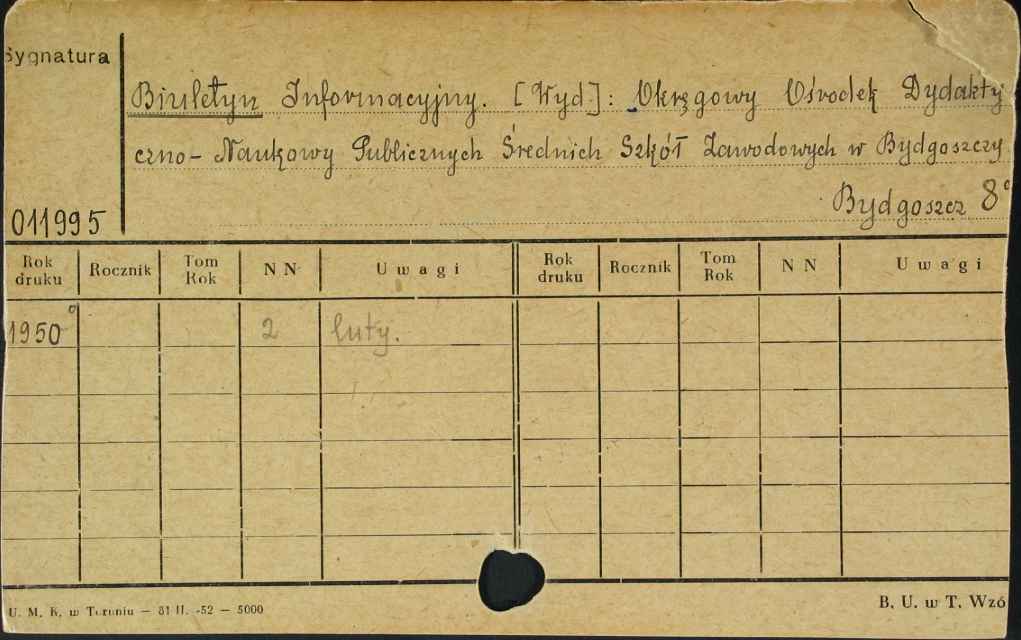 Sygnatura
Biuletyn Informacyjny. [Wyd]: Okręgowy Ośrodek Dydakty
czno - Naukowy Publicznych Średnich Szkół Zawodowych w Bydgoszczy
Bydgoszcz 8°
011995
Rok druku Rocznik Tom Rok N N Uwagi Rok druku Rocznik Tom Rok N N Uwagi
1950 2 luty.
U. M. K. w Toruniu — 81 II. -52 — 5000
B. U. w T. Wzó